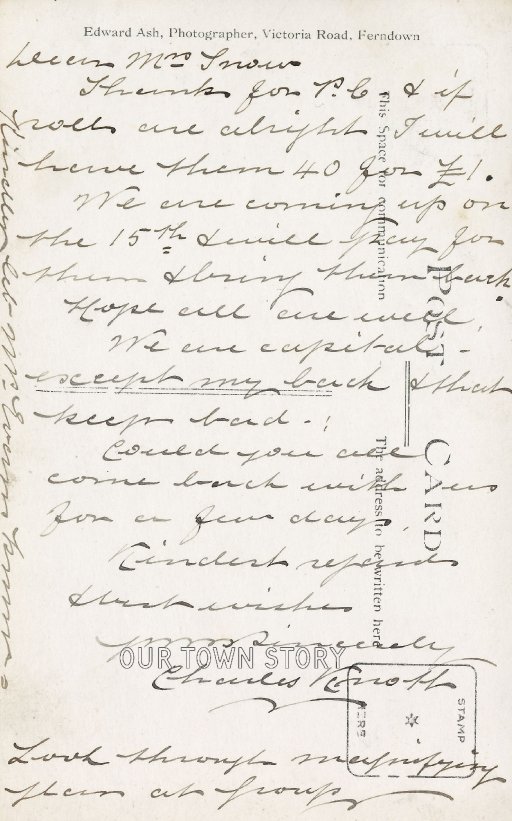 Edward Ash, Photographer, Victoria Road, Ferndown
Dear Mrs Snow
Thanks for P.C & if
rolls are alright I will
have them 40 for £1.
We are coming up on
the 5th & will pay for
them & bring them back.
Hope all are well,
We are capital -
except my back & that
keeps bad - !
Could you all
come back with us
for a few days.
Kindest regards
& best wishes
yours Sincerely
Charles Knott
Look through magnifying
glass at group
Kindly let Mr
This Space for communication
POST CARD
The address to be written here
STAMP
HERE
OUR TOWN STORY